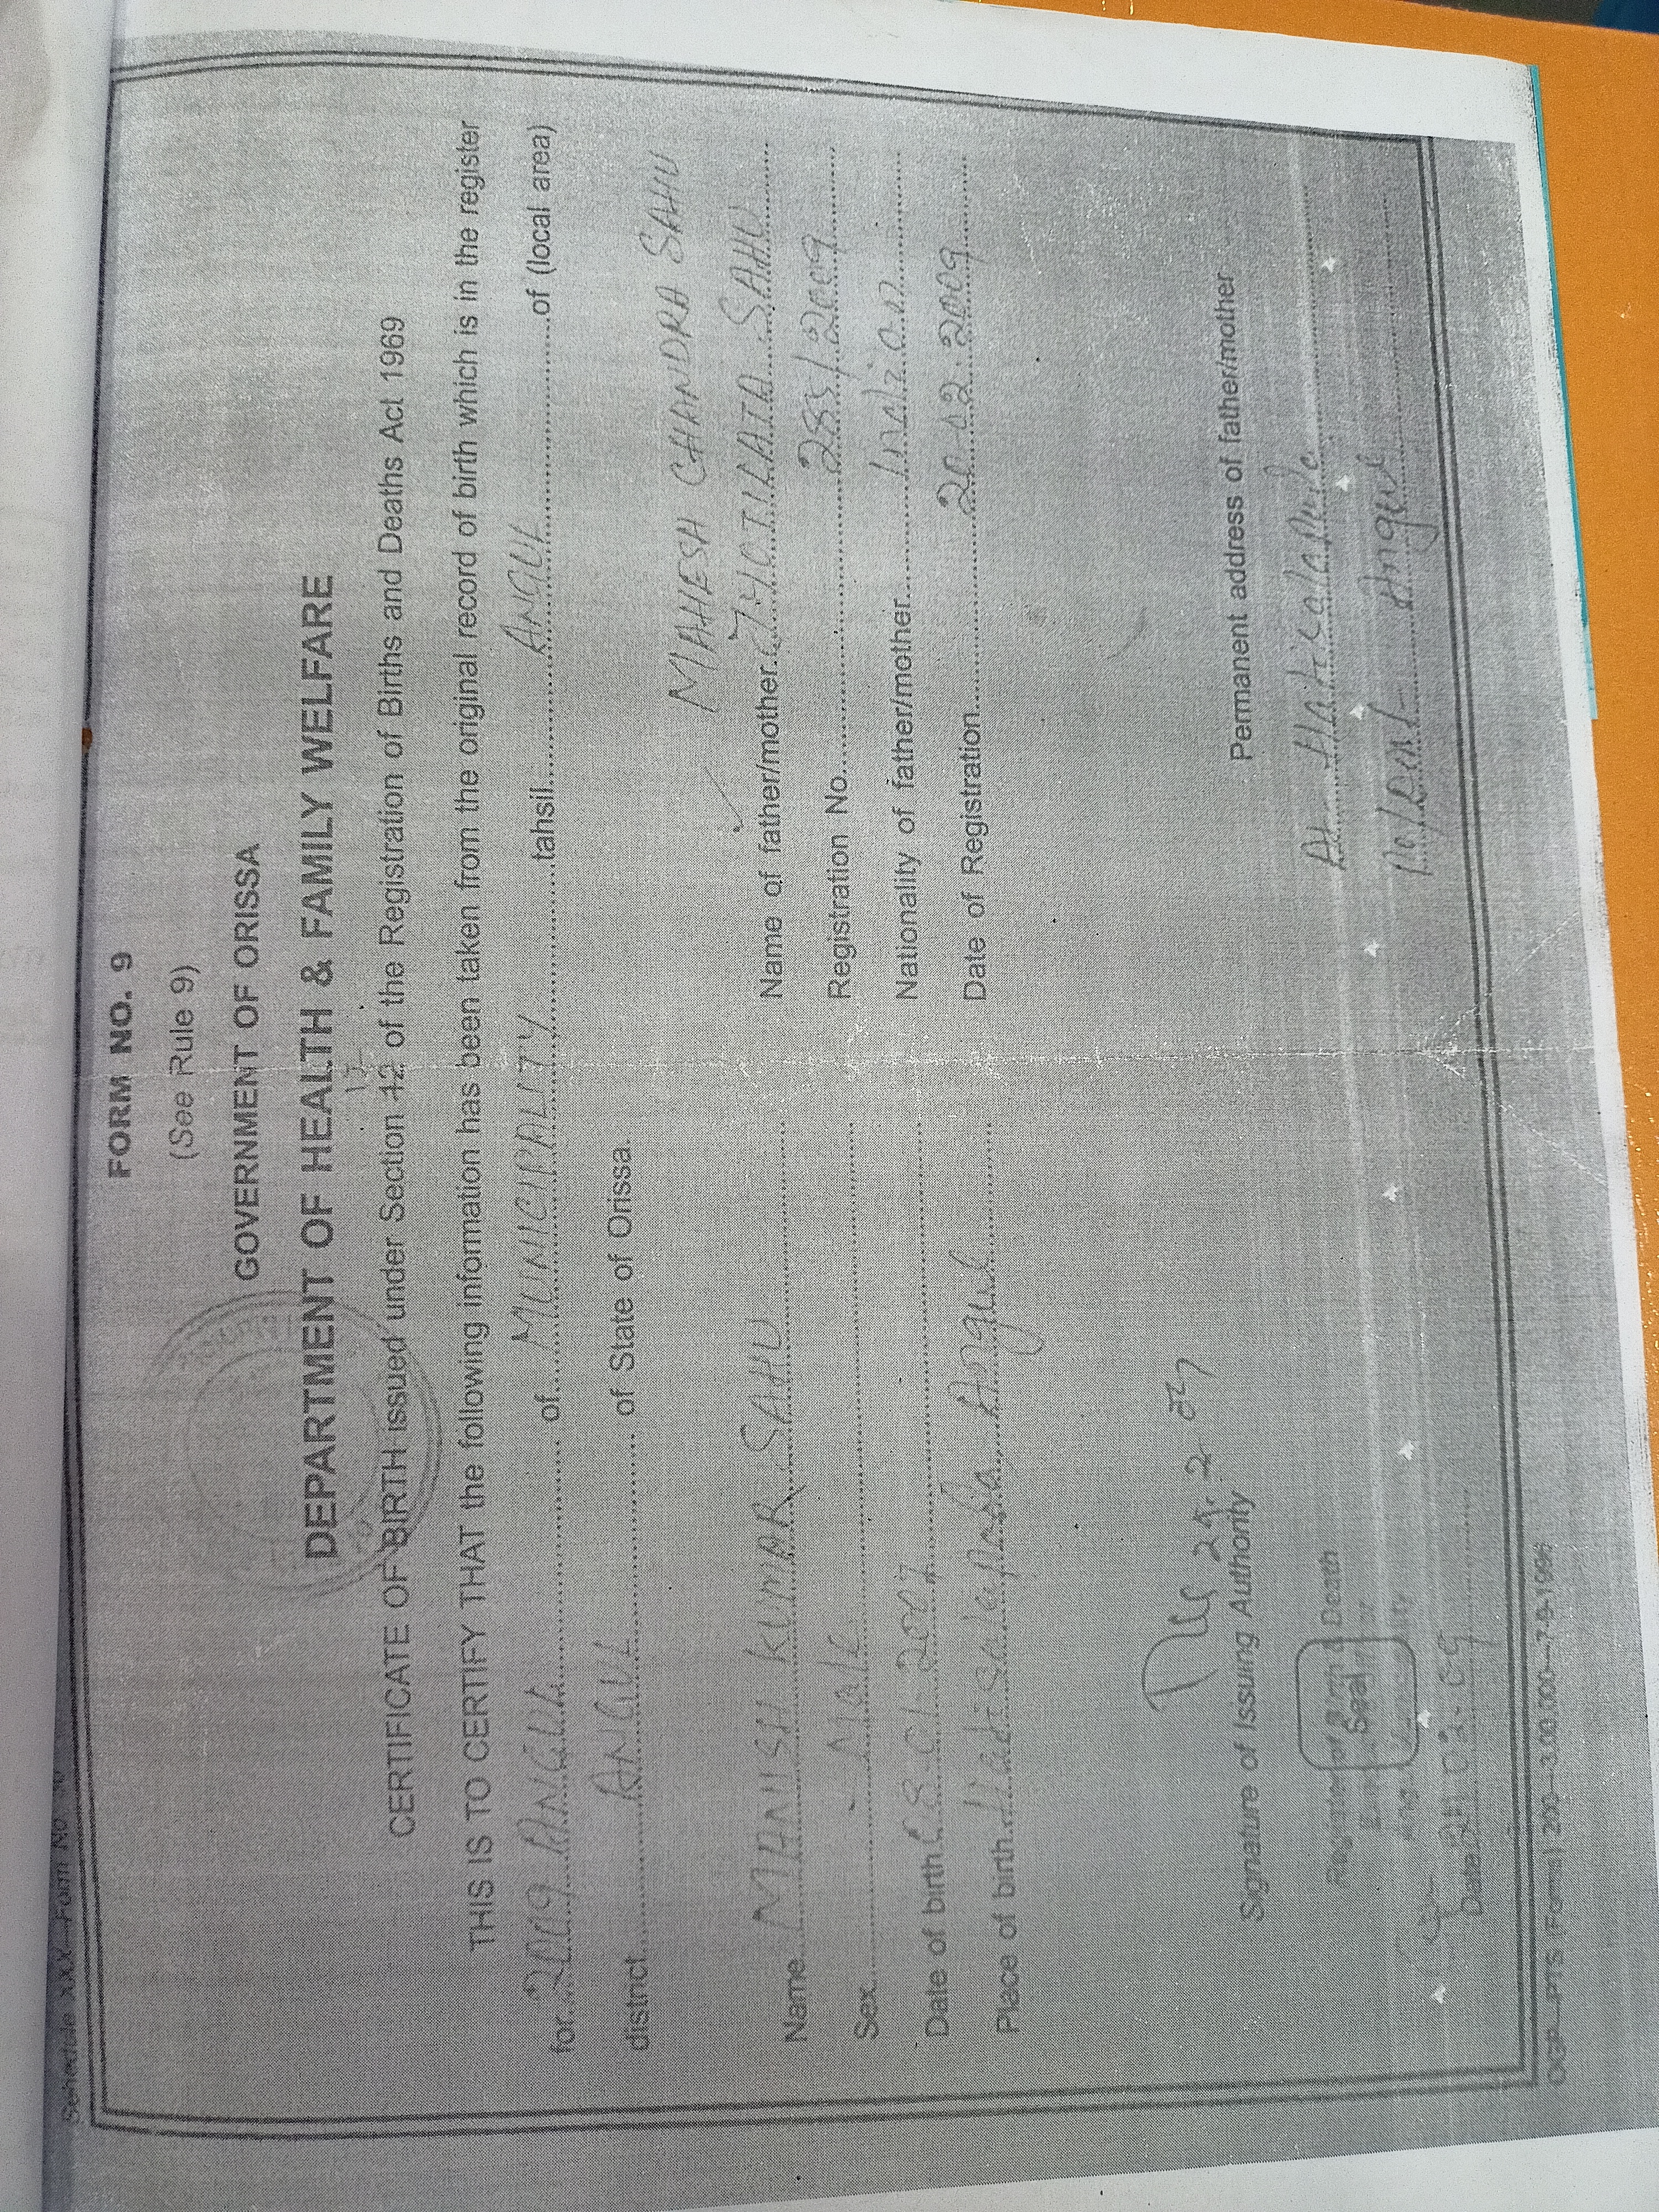 Schedule XXX—Form No.
FORM NO. 9
(See Rule 9)
GOVERNMENT OF ORISSA
DEPARTMENT OF HEALTH & FAMILY WELFARE
CERTIFICATE OF BIRTH issued under Section 12 of the Registration of Births and Deaths Act 1969
THIS IS TO CERTIFY THAT the following information has been taken from the original record of birth which is in the register
for 2009 ANGUL of MUNICIPALITY tahsil ANGUL of (local area)
district ANGUL of State of Orissa.
MAHESH CHANDRA SAHU
Name MANISH KUMAR SAHU Name of father/mother JYOTILATA SAHU
Sex Male Registration No. /2009
Date of birth Nationality of father/mother Indian
Place of birth Angul Date of Registration 20.02.2009
Signature of Issuing Authority Permanent address of father/mother
Death At
Seal Angul
Date
OGP—PTS (Form) 200—3,00,000—7-9-1996